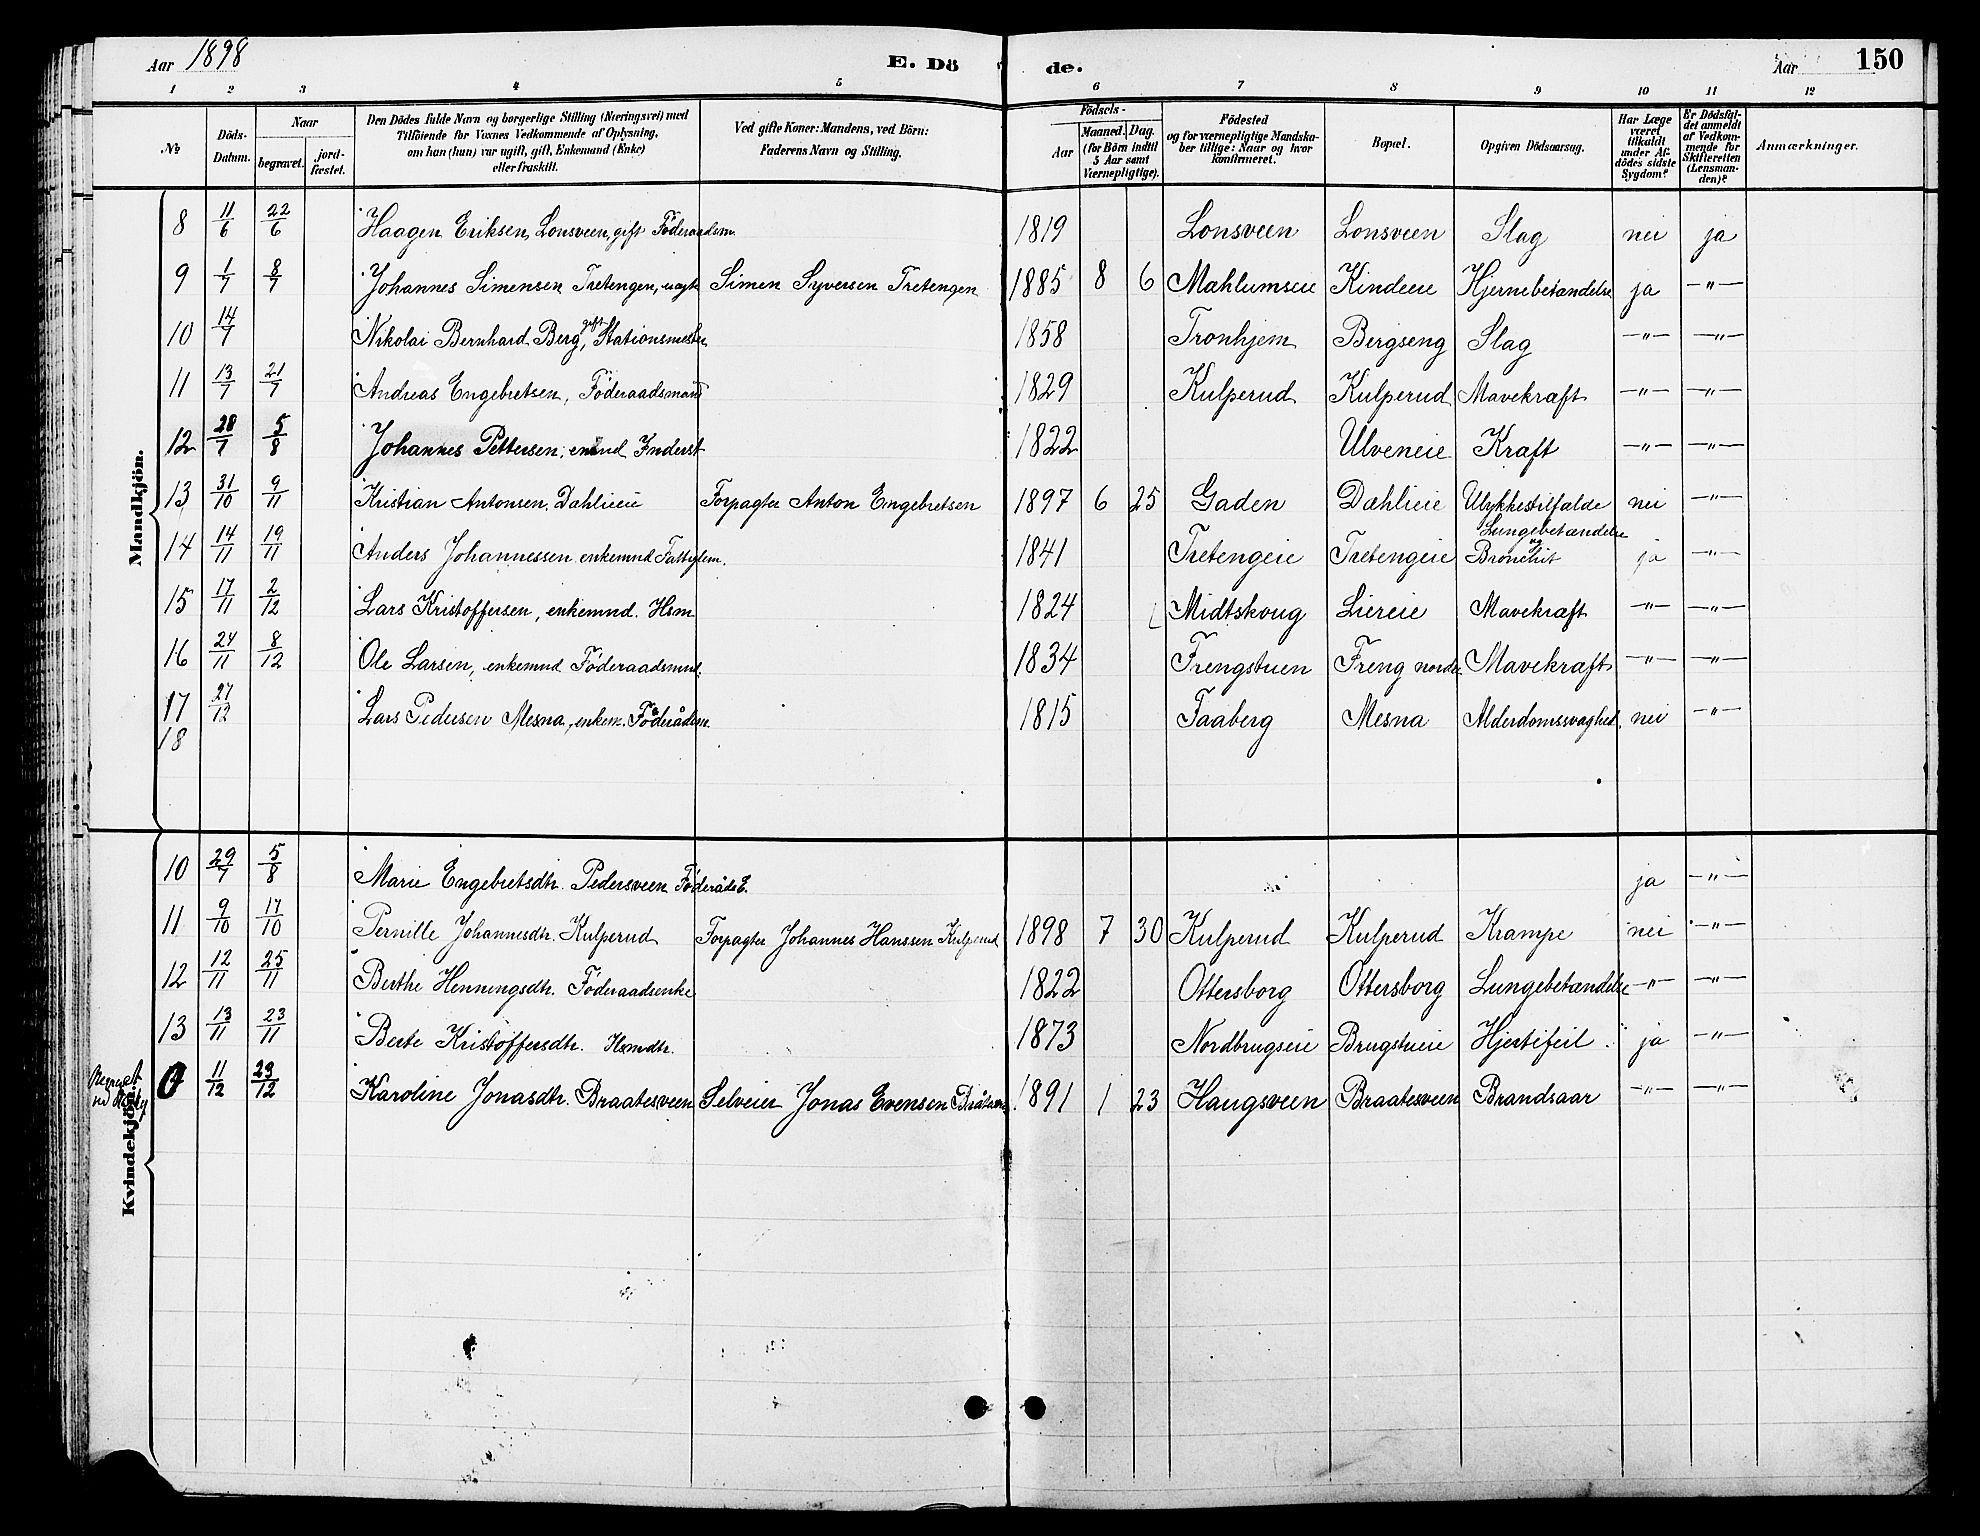 Aar 1898 E. Dö de. Aar 150
1 2 3 4 5 6 7 8 9 10 11 12
No Döds-Datum. Naar begravet. jord-fæstet. Den Dödes fulde Navn og borgerlige Stilling (Næringsvei) med Tilföiende for Voxnes Vedkommende af Oplysning, om han (hun) var ugift, gift, Enkemand (Enke) eller fraskilt. Ved gifte Koner: Mandens, ved Börn: Faderens Navn og Stilling. Födsels- Aar Maaned. Dag. (for Börn indtil 5 Aar samt Værnepligtige). Födested og for værnepligtige Mandskaber tillige: Naar og hvor konfirmeret. Bopæl. Opgiven Dödsaarsag. Har Læge været tilkaldt under Afdödes sidste Sygdom? Er Dödsfaldet anmeldt af Vedkommende for Skifteretten (Lensmanden)? Anmærkninger.
Mandkjön.
8 11/6 22/6 Haagen Eriksen Lonsveen, gift Föderaadsm. 1819 Lonsveen Lonsveen Slag nei ja
9 1/7 8/7 Johannes Simensen Tretengen, ugift Simen Syversen Tretengen 1885 8 6 Mahlumseie Kindeeie Hjernebetændelse ja -"-
10 14/7 Nikolai Bernhard Berg, gift Stationsmester 1858 Tronhjem Bergseng Slag -"- -"-
11 13/7 21/7 Andreas Engebretsen, Föderaadsmand 1829 Kulperud Kulperud Mavekræft -"- -"-
12 28/7 5/8 Johannes Pettersen, Inderst 1822 Ulveneie Kræft -"- -"-
13 31/10 9/11 Kristian Antonsen Dahlieie Forpagter Anton Engebretsen 1897 6 25 Gaden Dahlieie Ulykkestilfælde nei -"-
14 14/11 19/11 Anders Johannessen enkemnd Fattiglem. 1841 Tretengeie Tretengeie Lungebetændelse og Bronchit ja -"-
15 17/11 2/12 Lars Kristoffersen, enkemnd. Hsm 1824 Midtskoug Liereie Mavekræft -"- -"-
16 24/11 8/12 Ole Larsen, enkemnd Föderaadsmnd. 1834 Frengstuen Freng nordre Mavekræft -"- -"-
17 27/12 Lars Pedersen Mesna, enkem. Föderådsm. 1815 Faaberg Mesna Alderdomssvaghed. nei -"-
18
Kvindekjön.
10 29/7 5/8 Marie Engebretsdtr. Pedersveen Föderåds E. ja -"-
11 9/10 17/10 Pernille Johannesdtr. Kulperud Forpagter Johannes Hanssen Kulperud 1898 7 30 Kulperud Kulperud Krampe nei -"-
12 12/11 25/11 Berthe Henningsdtr. Föderaadsenke 1822 Ottersborg Ottersborg Lungebetændelse -"- -"-
13 13/11 23/11 Berte Kristoffersdtr. Hsmdtr. 1873 Nordbrugseie Brugstueie Hjertefeil ja -"-
0 11/12 23/12 Karoline Jonasdtr. Braatesveen Selveier Jonas Evensen Bråtesveen 1891 1 23 Haugsveen Braatesveen Brandsaar -"- -"-